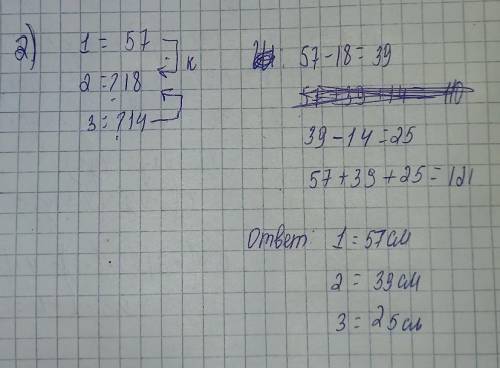 2)
1 = 57
2 = ? 18
3 = ? 14
к
57 - 18 = 39
39 - 14 = 25
57 + 39 + 25 = 121
Ответ: 1 = 57 см
2 = 39 см
3 = 25 см